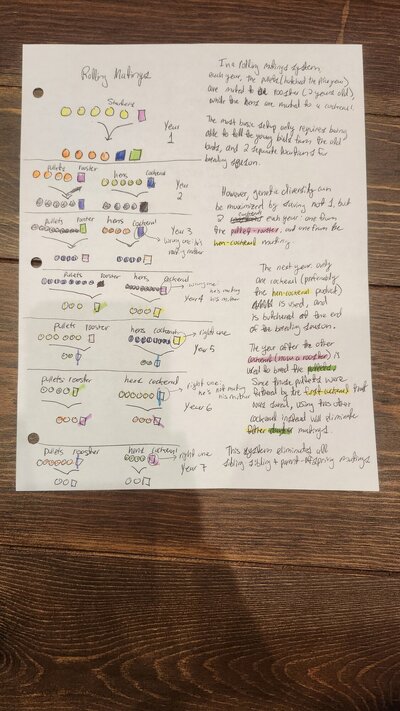 Rolling Matings
Starters
Year
1
pullets rooster hens cockerel
Year
2
pullets rooster hens cockerel Year 3
wrong one he's
pullets rooster hens cockerel
wrong one
he's mating
Year 4 his sister
pullets rooster hens cockerel right one
Year 5
pullets rooster hens cockerel
right one
he's not mating
his mother
Year 6
pullets rooster hens cockerel
right one
Year 7
In a rolling matings system
each year, the pullets (hatched the prior year)
are mated to a rooster (2 years old)
while the hens are mated to a cockerel.
The most basic setup only requires being
able to tell the young birds from the old
birds, and 2 separate locations for
breeding season.
However, genetic diversity can
be maximized by saving not 1, but
2 cockerels each year: one from
the pullet-rooster, and one from the
hen-cockerel mating.
The next year only
one cockerel (preferably
the hen-cockerel product)
is used, and
is butchered at the end
of the breeding season.
The year after the other
cockerel (now a rooster) is
used to breed the pullets.
Since those pullets were
fathered by the first cockerel that
were saved, using this other
cockerel instead will eliminate
father daughter matings.
This system eliminates all
sibling-sibling + parent-offspring matings